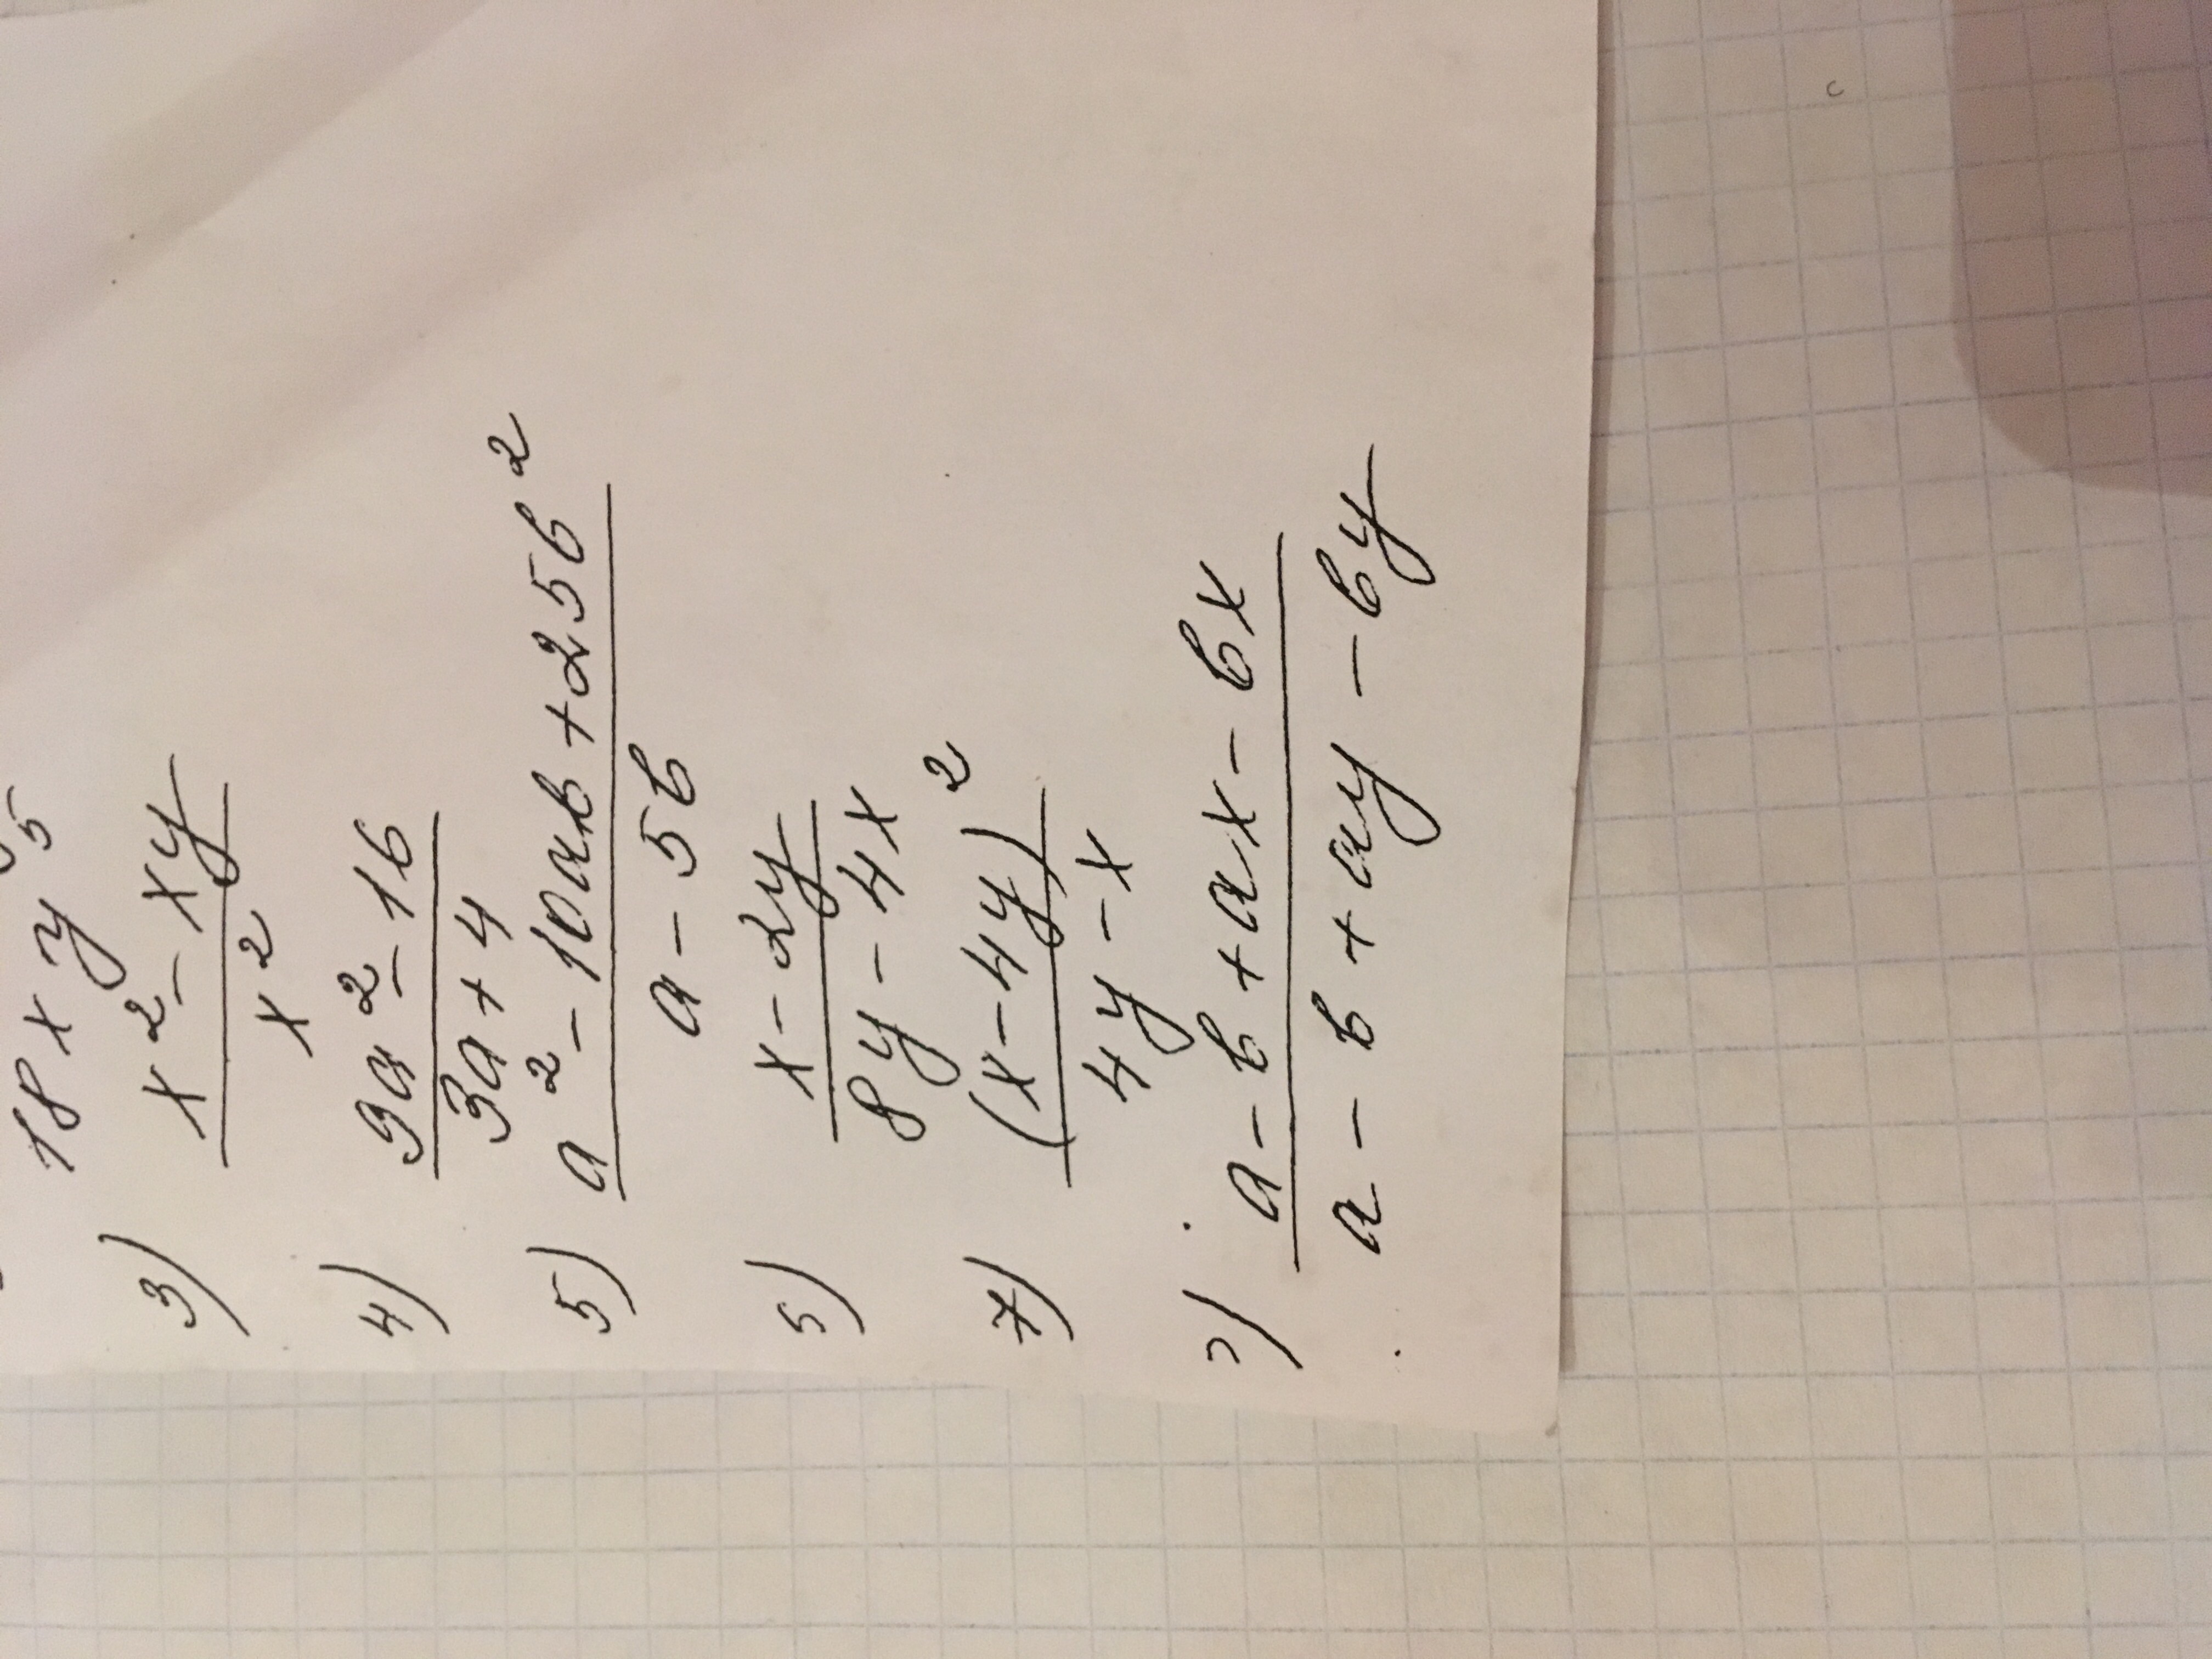 18xy⁵
3) x² - xy
x²
4) 9a² - 16
3a + 4
5) a² - 10ab + 25b²
a - 5b
5) x - 2y
8y - 4x
7) (x - 4y)²
4y - x
) a - b + ax - bx
a - b + ay - by